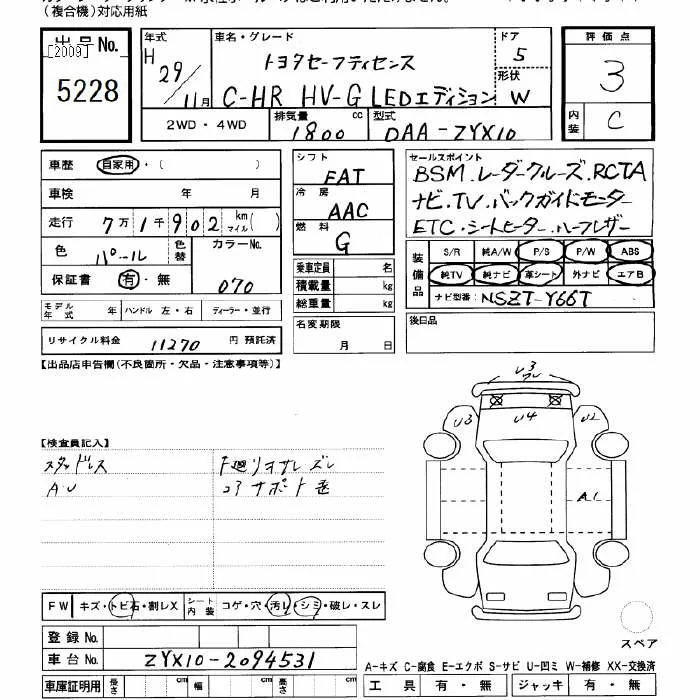 （複合機）対応用紙
出品No.
[2009]
5228
年式 車名・グレード ドア
H 29/11月 トヨタセーフティセンス 5
形状
C-HR HV-G LEDエディション W
2WD・4WD 排気量 1800 cc 型式 DAA-ZYX10
評価点
3
内装 C
車歴 自家用・（ ）
車検 年 月
走行 7万1千902 km マイル（ ）
色 パール 色替 カラーNo. 070
保証書 有・無
モデル年式 年 ハンドル 左・右 ディーラー・並行
リサイクル料金 11270 円 預託済
シフト FAT
冷房 AAC
燃料 G
乗車定員 名
積載量 kg
総重量 kg
名変期限
月 日
セールスポイント
BSM.レーダークルーズ.RCTA
ナビ.TV.バックガイドモニター
ETC.シートヒーター.ハーフレザー
装備品
S/R 純A/W P/S P/W ABS
純TV 純ナビ 革シート 外ナビ エアB
ナビ型番: NSZT-Y66T
後日品
【出品店申告欄（不良箇所・欠品・注意事項等）】
【検査員記入】
スタッドレス 下廻りサビ
AU コアサポート
U3 U4 U2
A1
FW キズ・トビ石・割レX シート内装 コゲ・穴・汚レ・シミ・破レ・スレ
登録No.
車台No. ZYX10-2094531
車庫証明用 長さ cm 幅 cm 高さ cm
スペア
A-キズ C-腐食 E-エクボ S-サビ U-凹ミ W-補修 XX-交換済
工具 有・無 ジャッキ 有・無